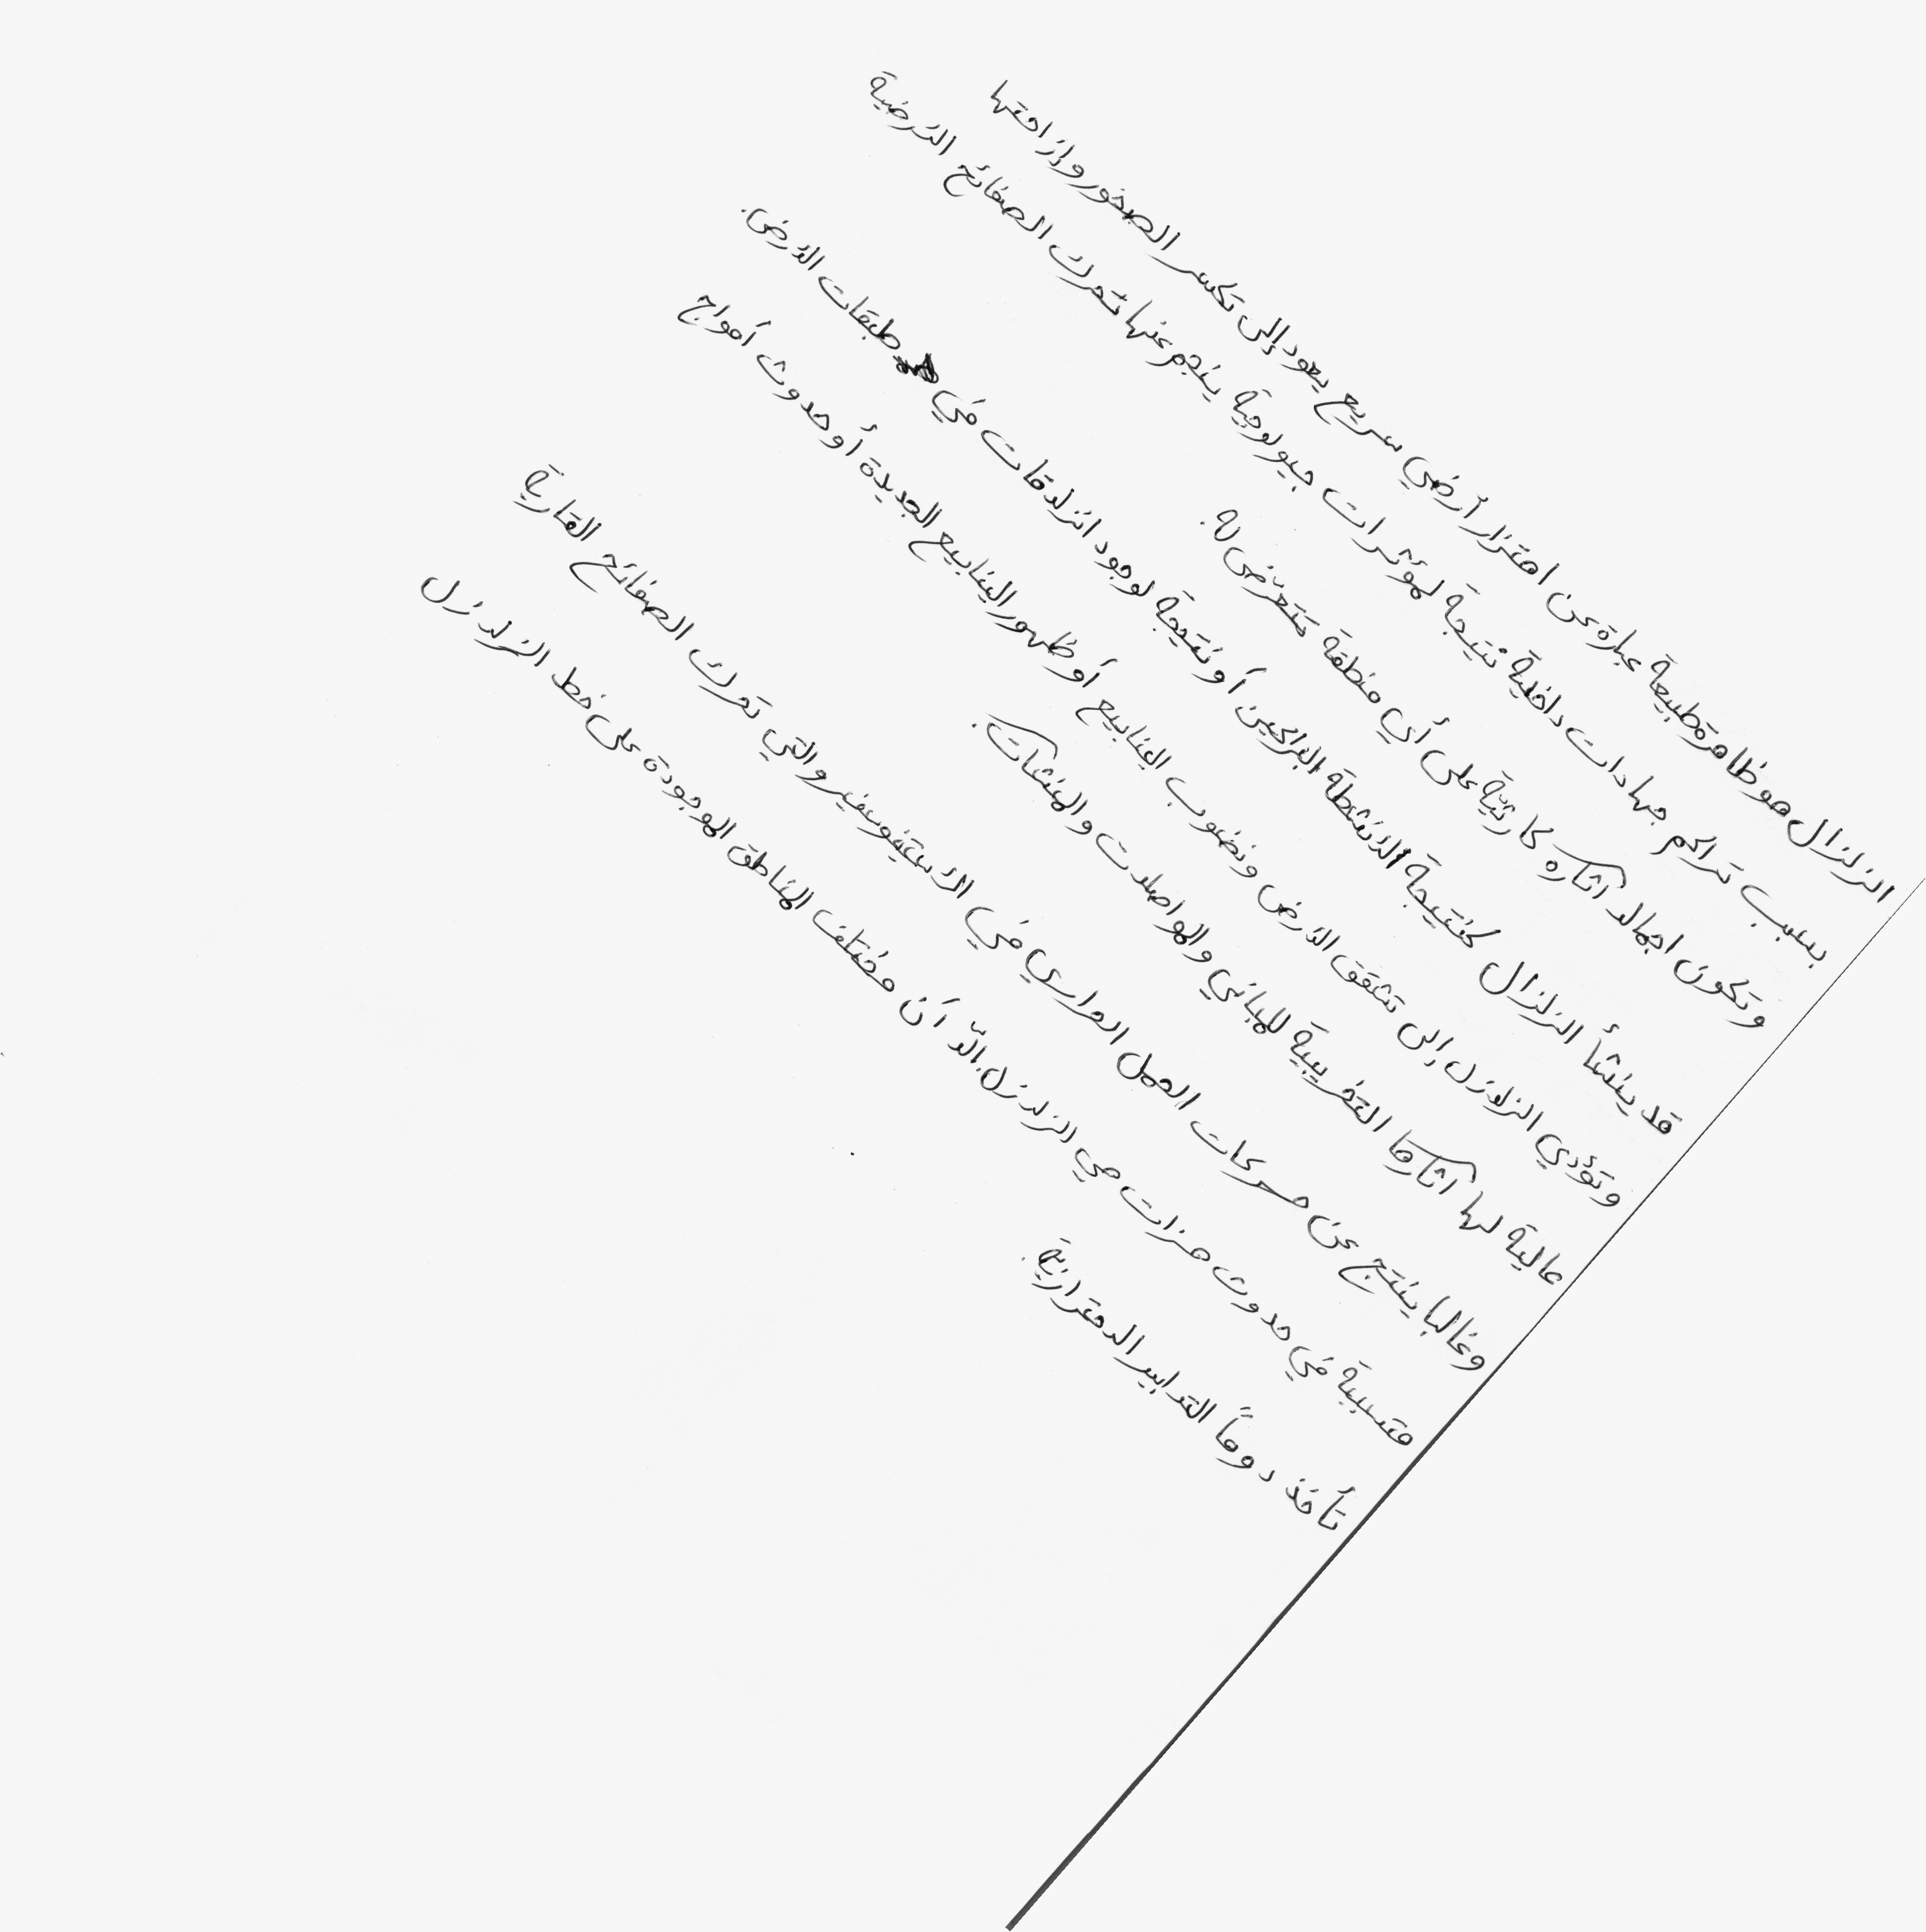 الزلزال هو ظاهرة طبيعة عبارة عن اهتزاز أرضي سريع يعود إلى تكسر الصخور وإزاحتها
بسبب تراكم جهادات داخلية نتيجة لمؤثرات جيولوجية ينجم عنها تحرك الصفائح الأرضية
وتكون اجمالا آثاره كارثية على أي منطقة تتعرّض له.
قد ينشأ الزلزال كنتيجة لأنشطة البراكين أو نتيجة لوجود انزلاقات في طبقات الأرض.
وتؤدي الزلازل إلى تشقق الأرض ونضوب الينابيع أو ظهور الينابيع الجديدة أو حدوث أمواج
عالية لها آثارها التخريبية للمباني والمواصلات والمنشآت.
وغالبا ينتج عن حركات الحمل الحراري في الاستينوسفير والتي تحرك الصفائح القارية
متسببة في حدوث هزات هي الزلازل. إلّا أن مختلف المناطق الموجودة على خط الزلازل
تأخذ دوماً التدابير الاحترازية.